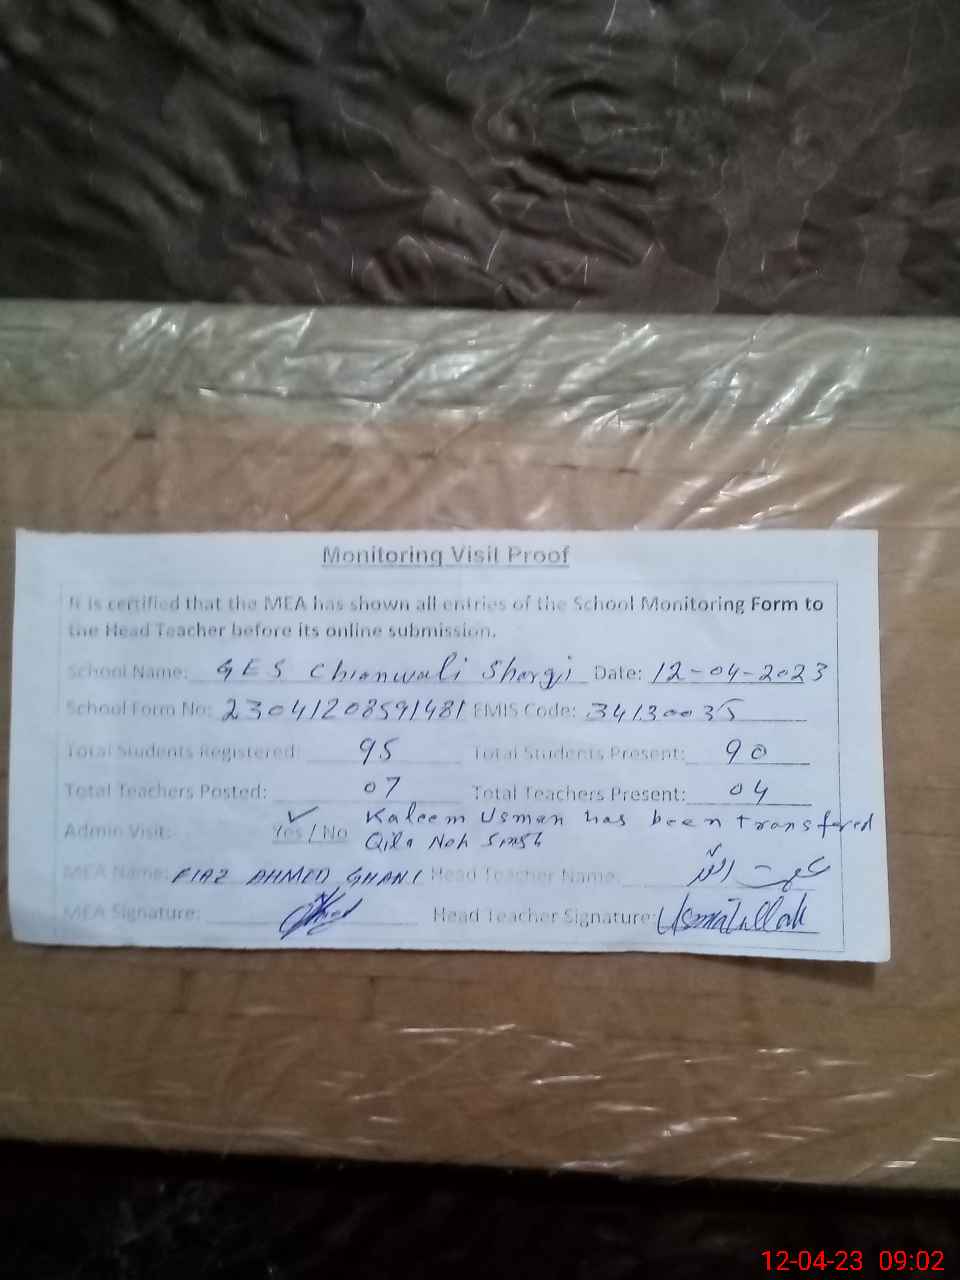 Monitoring Visit Proof
It is certified that the MEA has shown all entries of the School Monitoring Form to
the Head Teacher before its online submission.
School Name: GES Chianwali Shargi Date: 12-04-2023
School Form No: 23041208591481 EMIS Code: 34130035
Total Students Registered: 95 Total Students Present: 90
Total Teachers Posted: 07 Total Teachers Present: 04
Kaleem Usman has been transfered
Admin Visit: Yes / No Qila
MEA Name: FIAZ AHMED GHANI Head Teacher Name: عصمت اللہ
MEA Signature: Head Teacher Signature: Usmatullah
12-04-23 09:02